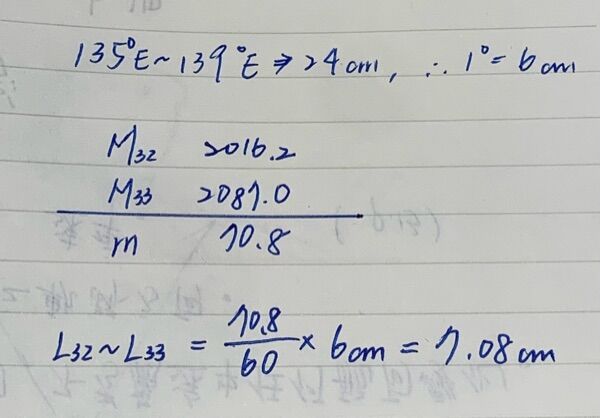 135°E~139°E ⇒ 24cm, ∴ 1° = 6cm
M32 2016.2
M33 2087.0
m 70.8
L32~L33 = 70.8/60 × 6cm = 7.08cm